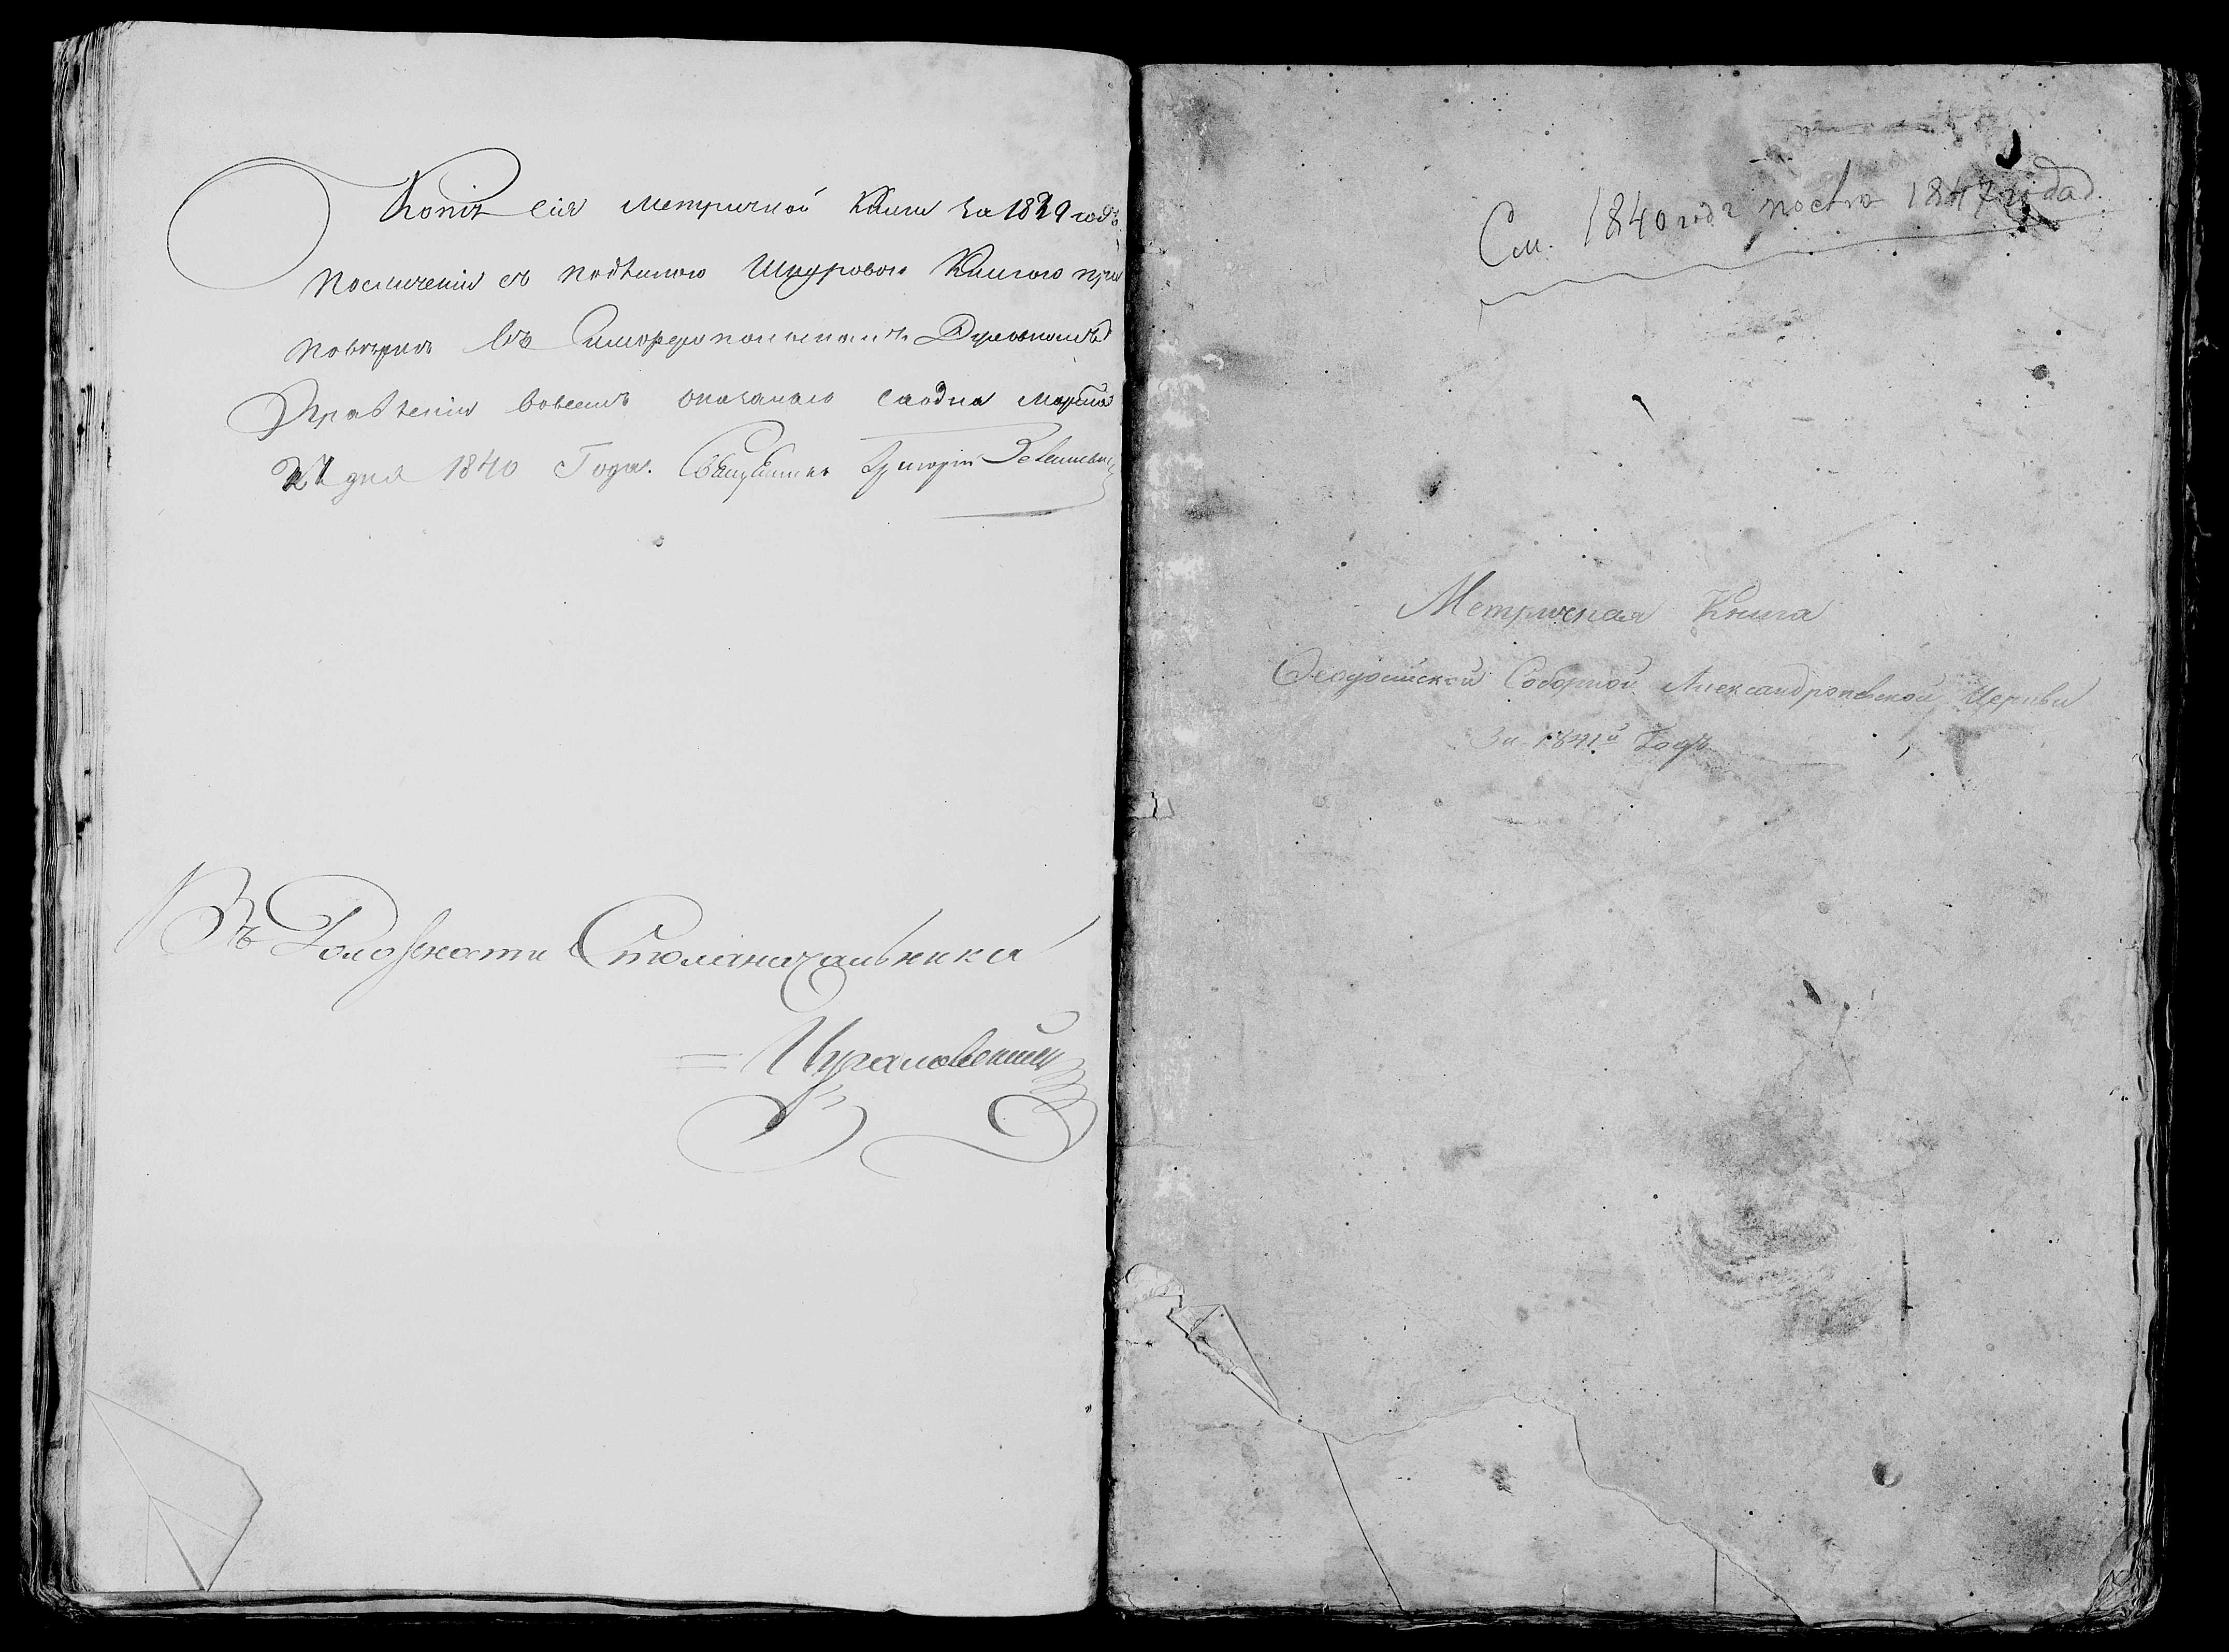 Копія сія метричной Книги за 1839 годъ
по сличеніи съ подлинною Шнуровою Книгою при
повѣркѣ въ Симферопольскомъ Духовномъ
Правленіи вовсемъ оказалась сходна марта
21 дня 1840 Года. Священникъ Григорій
Въ Должности Столоначальника
См. 1840 годъ послѣ 1847 года
Метрическая Книга
Феодосійской Соборной Александроневской Церкви
За 1841й Годъ